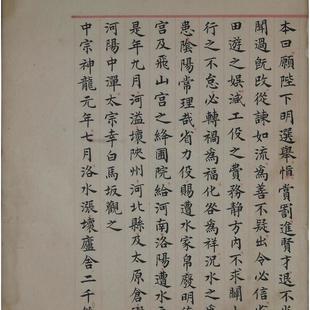 本日願陛下明選舉慎賞罰進賢才退不肖
聞過旣改從諫如流爲善不疑出令必信
田遊之娛減工役之費務静方内不求闢土
行之不怠必轉禍爲福化咎爲祥況水之
患陰陽常理哉省力役賜遭水家帛廢明德
宫及飛山宫之絳圃院給河南洛陽遭水
是年九月河溢壞陜州河北縣及太原倉
河陽中潬太宗幸白馬坂觀之
中宗神龍元年七月洛水漲壞廬舍二千